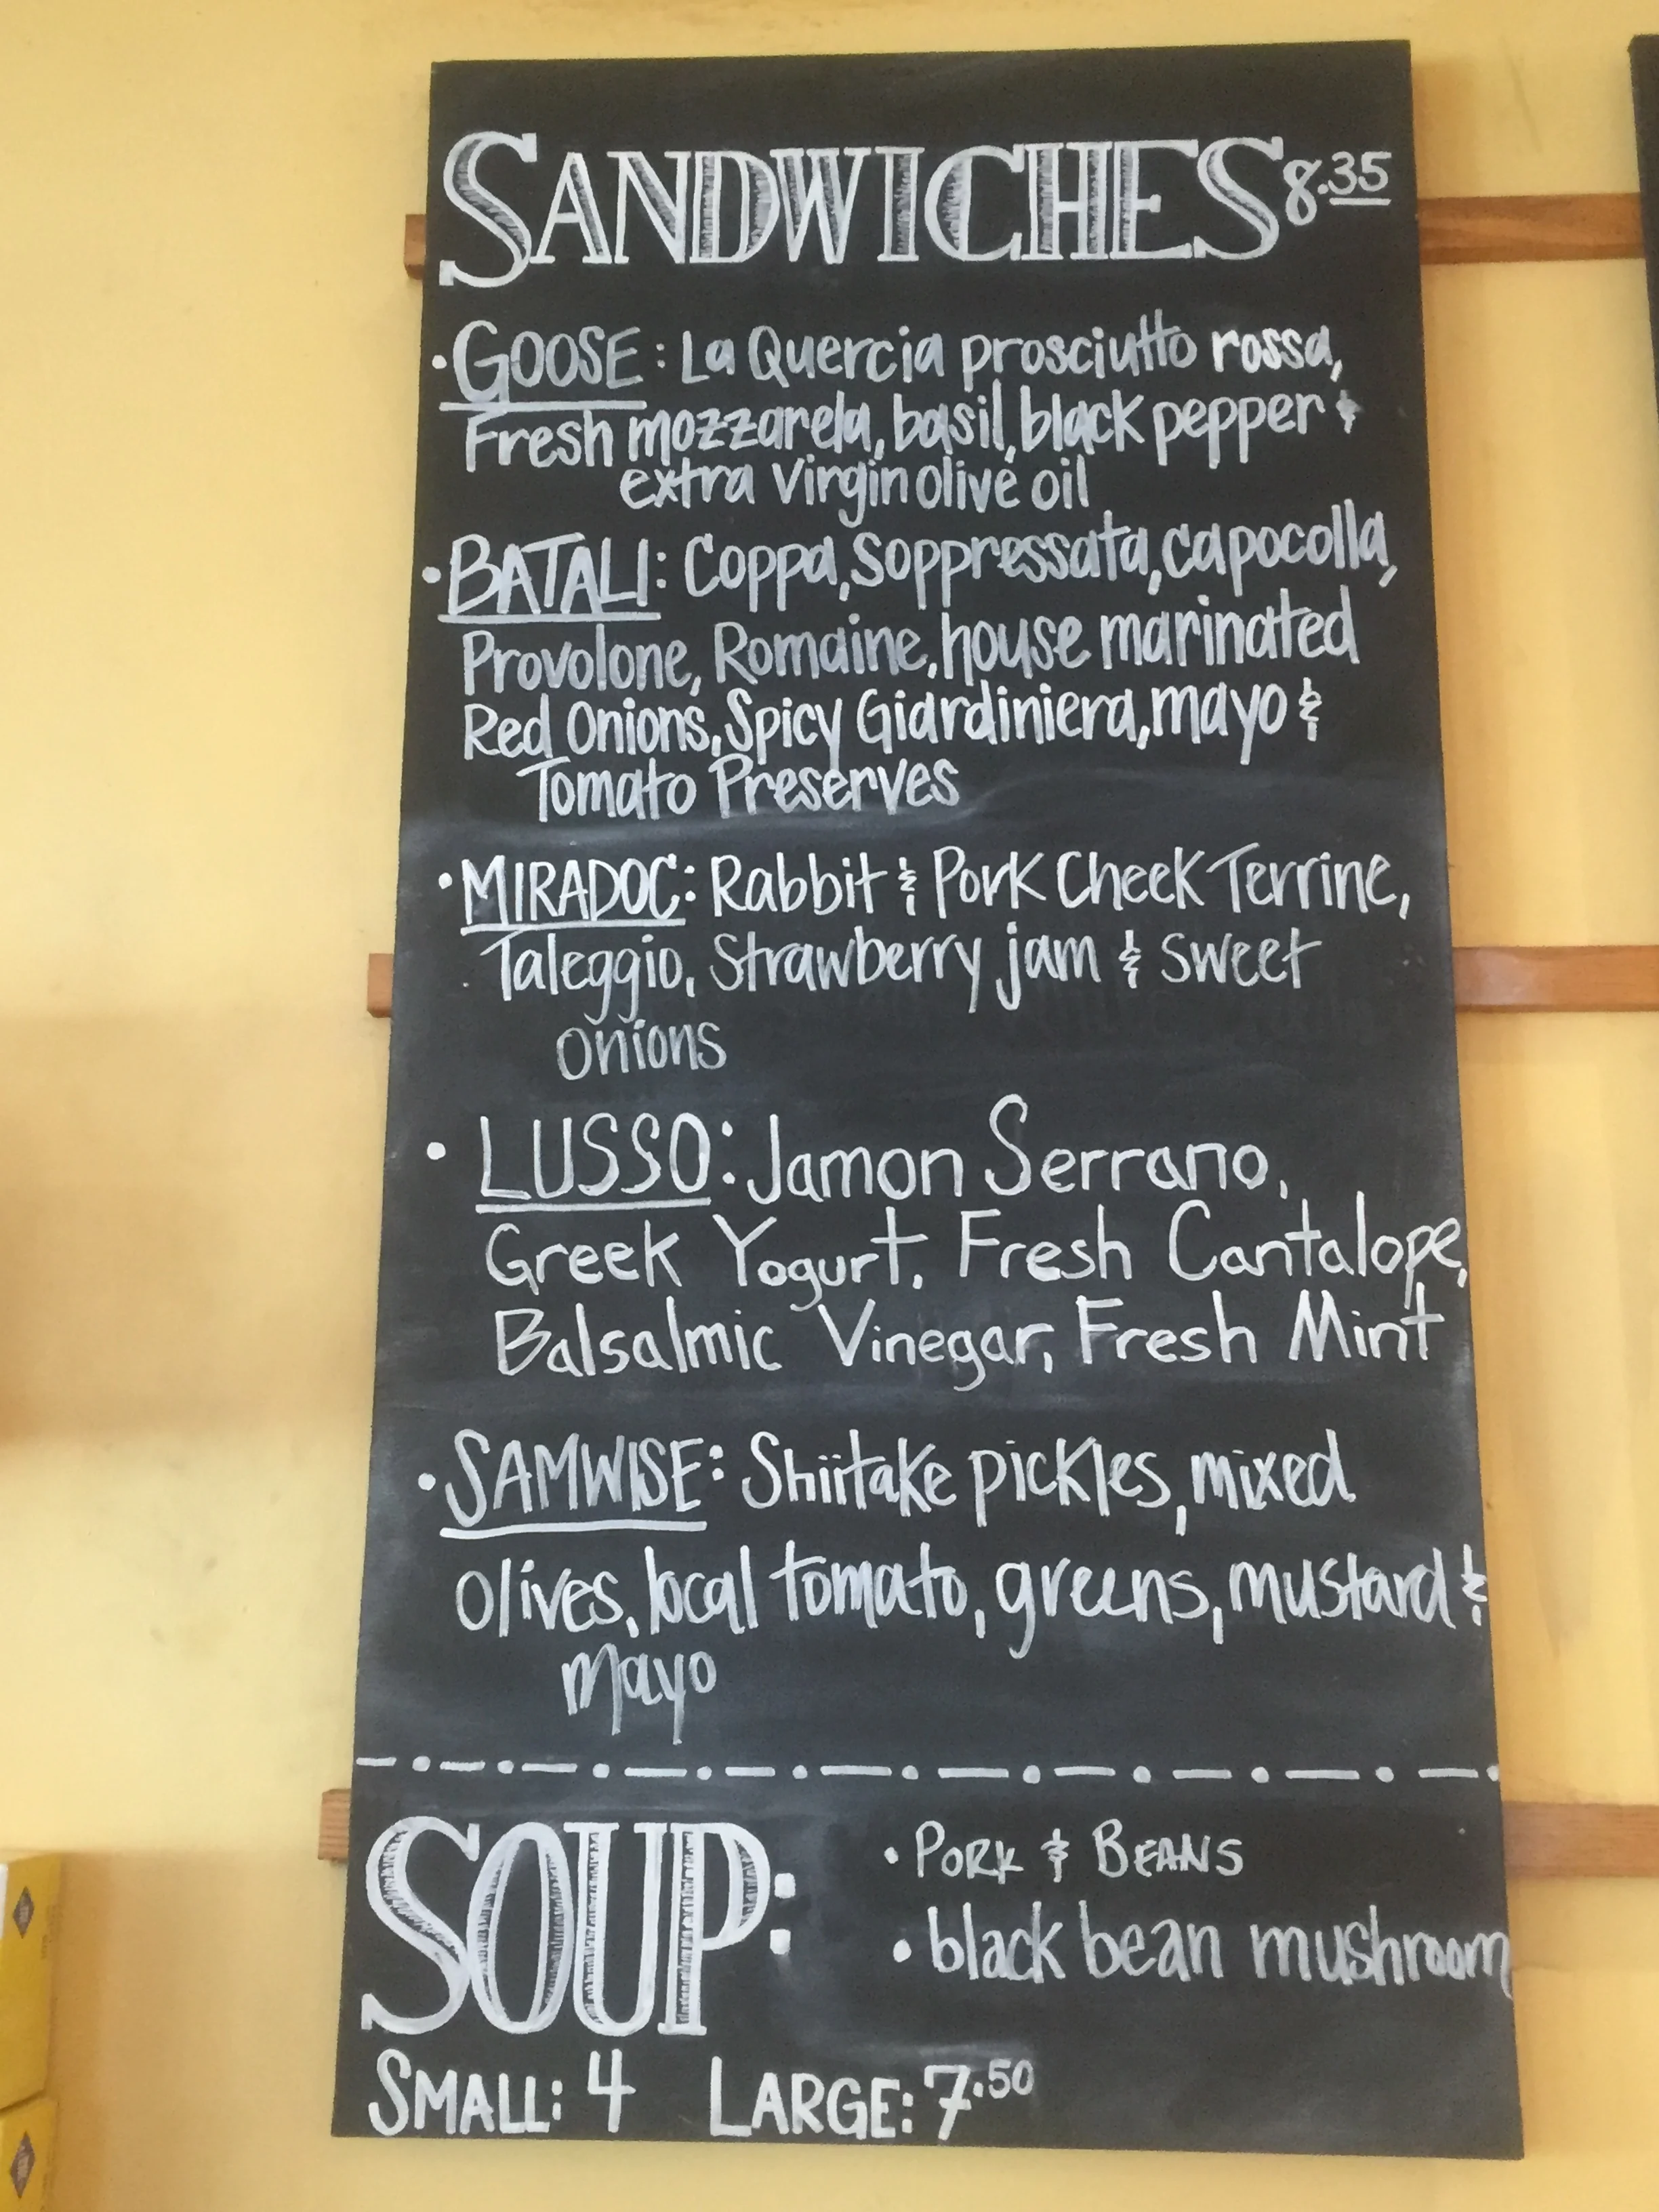 SANDWICHES 8.35
• GOOSE: La Quercia prosciutto rossa,
Fresh mozzarela, basil, black pepper &
extra virgin olive oil
• BATALI: Coppa, Soppressata, capocolla,
Provolone, Romaine, house marinated
Red Onions, Spicy Giardiniera, mayo &
Tomato Preserves
• MIRADOC: Rabbit & Pork Cheek Terrine,
Taleggio, Strawberry jam & sweet
onions
• LUSSO: Jamon Serrano,
Greek Yogurt, Fresh Cantalope,
Balsalmic Vinegar, Fresh Mint
• SAMWISE: Shiitake pickles, mixed
olives, local tomato, greens, mustard &
mayo
SOUP:
• PORK & BEANS
• black bean mushroom
SMALL: 4 LARGE: 7.50